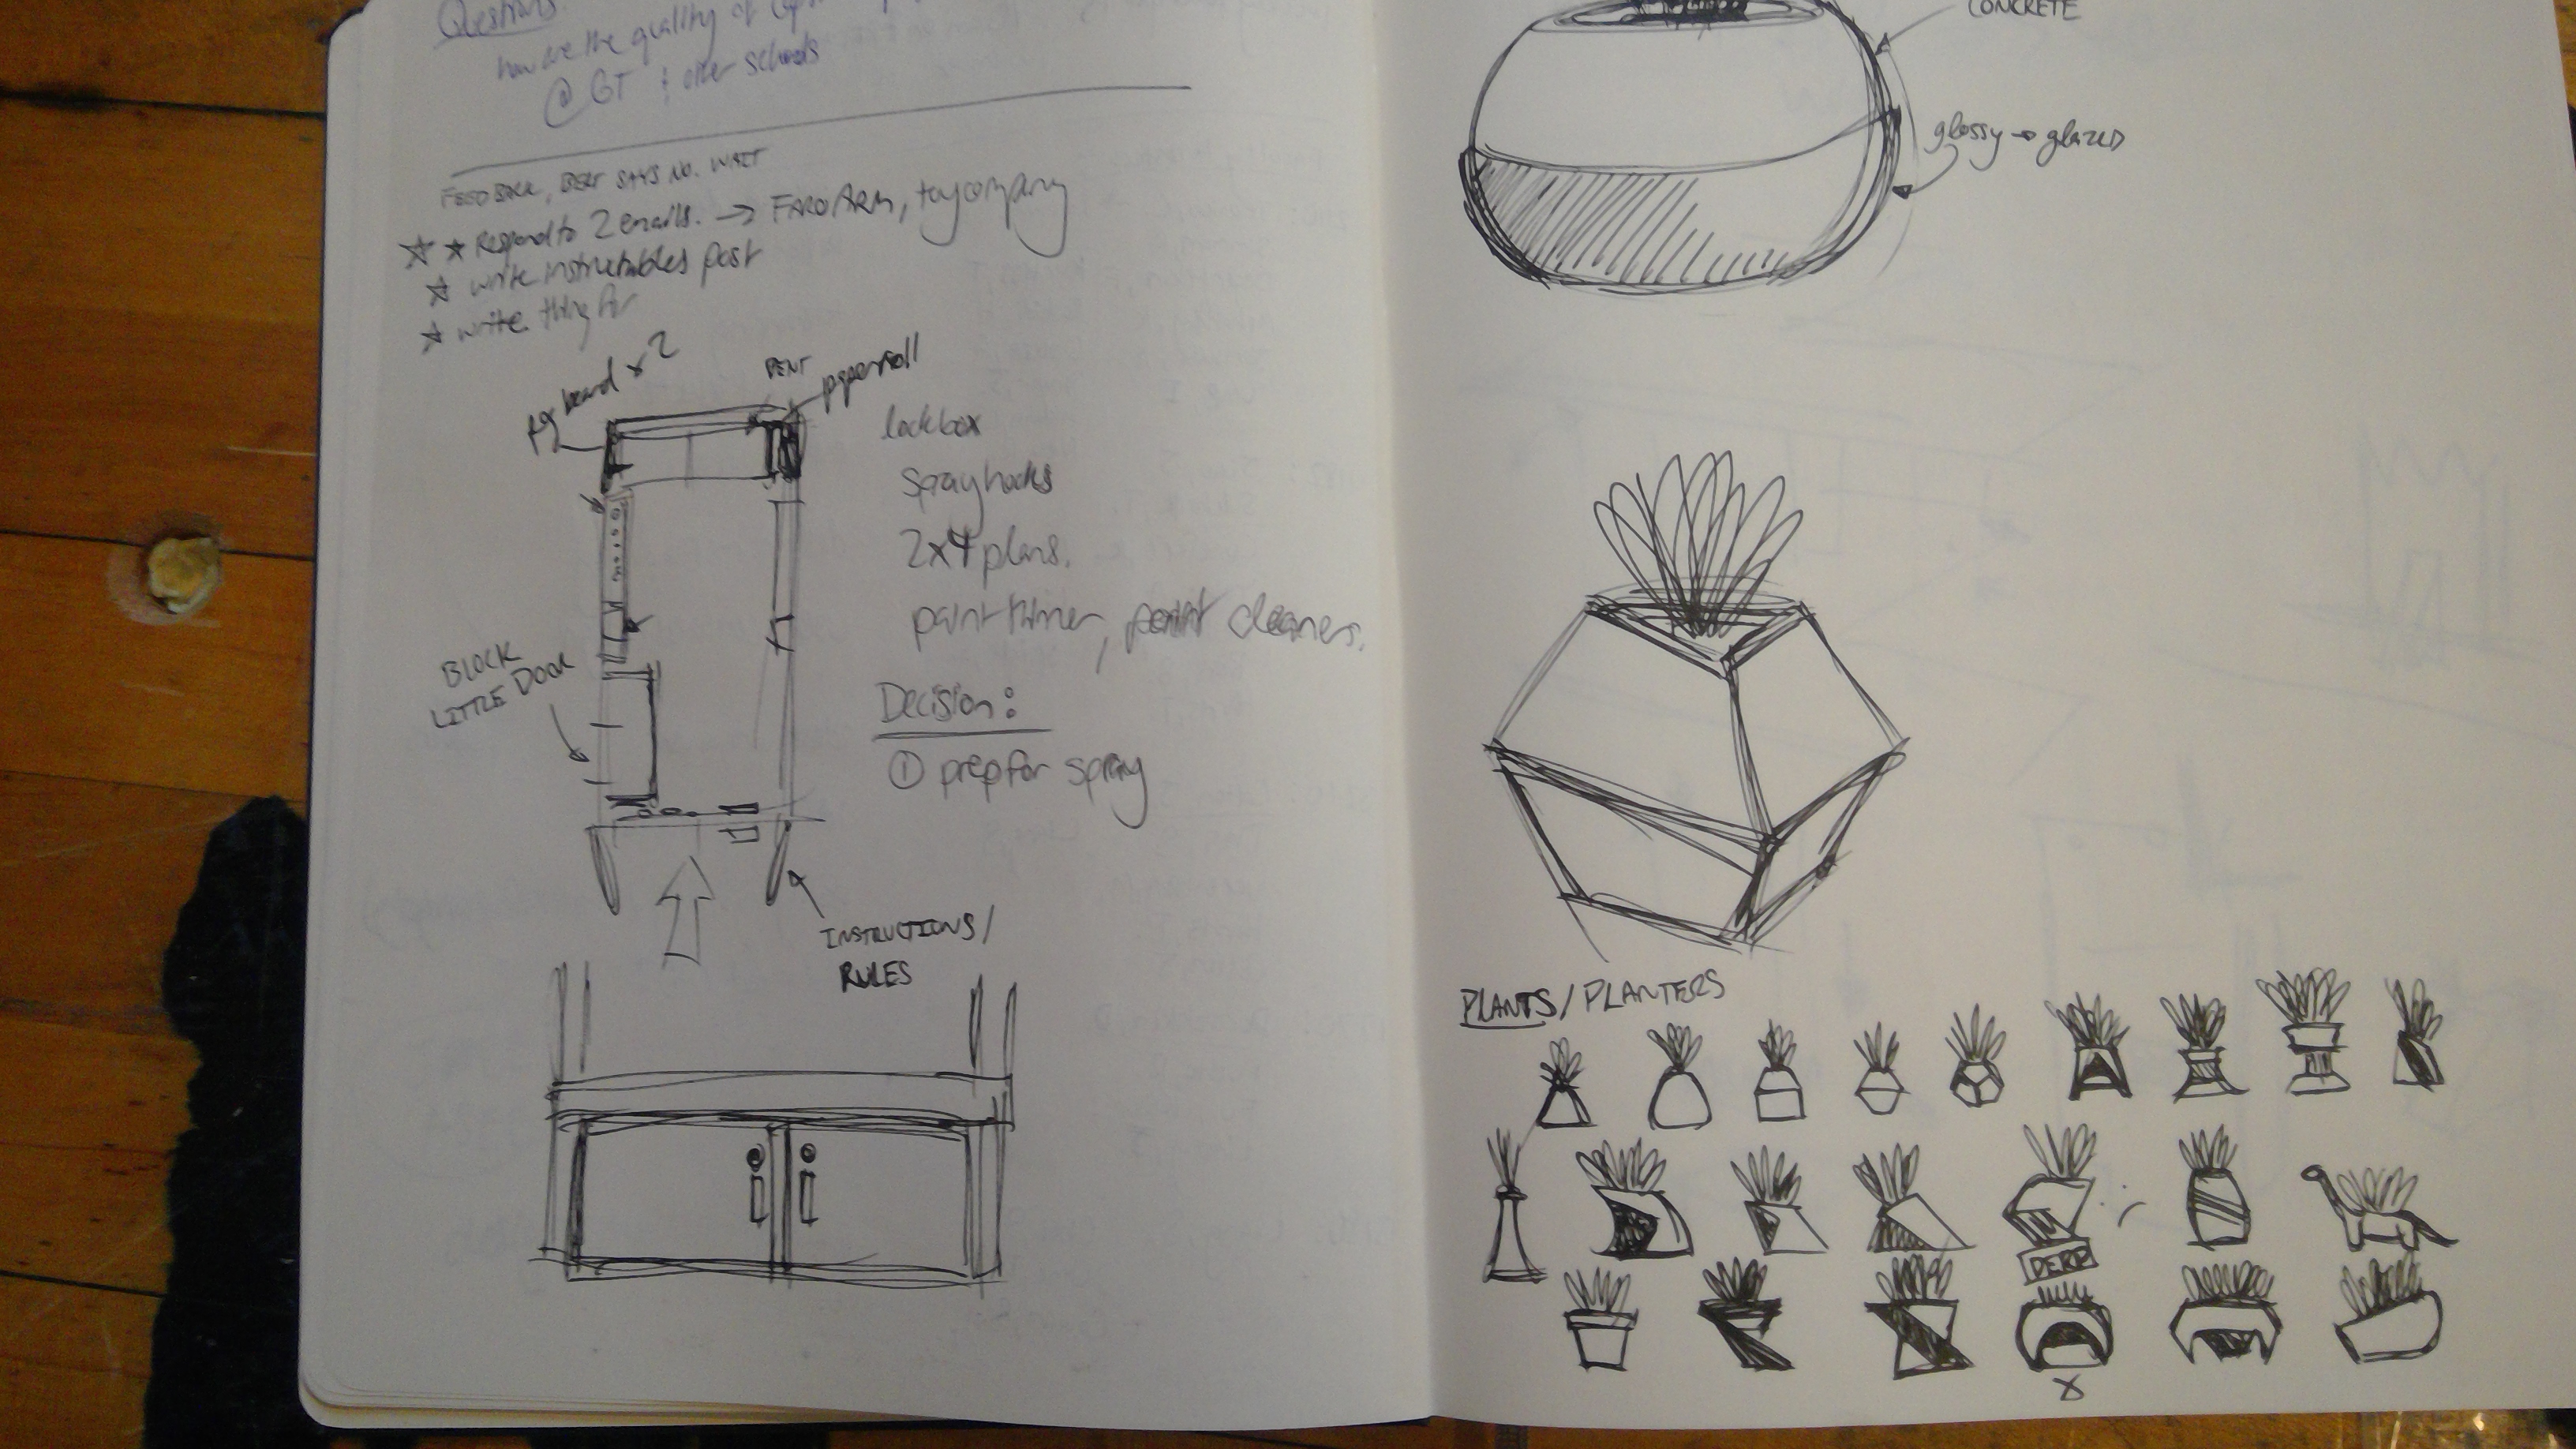 Questions:
how are the quality of
@ GT & other schools
FEEDBACK, BERT SAYS NO. WAIT
Respond to 2 emails. → FAROARM, toy company
write instructables post
write thing for
board x 2
BENT
paper roll
lockbox
spray hooks
2x4 plans.
paint thinner, paint cleaners.
BLOCK
LITTLE DOOR
Decision:
① prep for spray
INSTRUCTIONS/
RULES
CONCRETE
glossy → glazed
PLANTS/PLANTERS
DERP
X